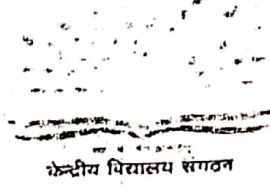 केन्द्रीय विद्यालय संगठन